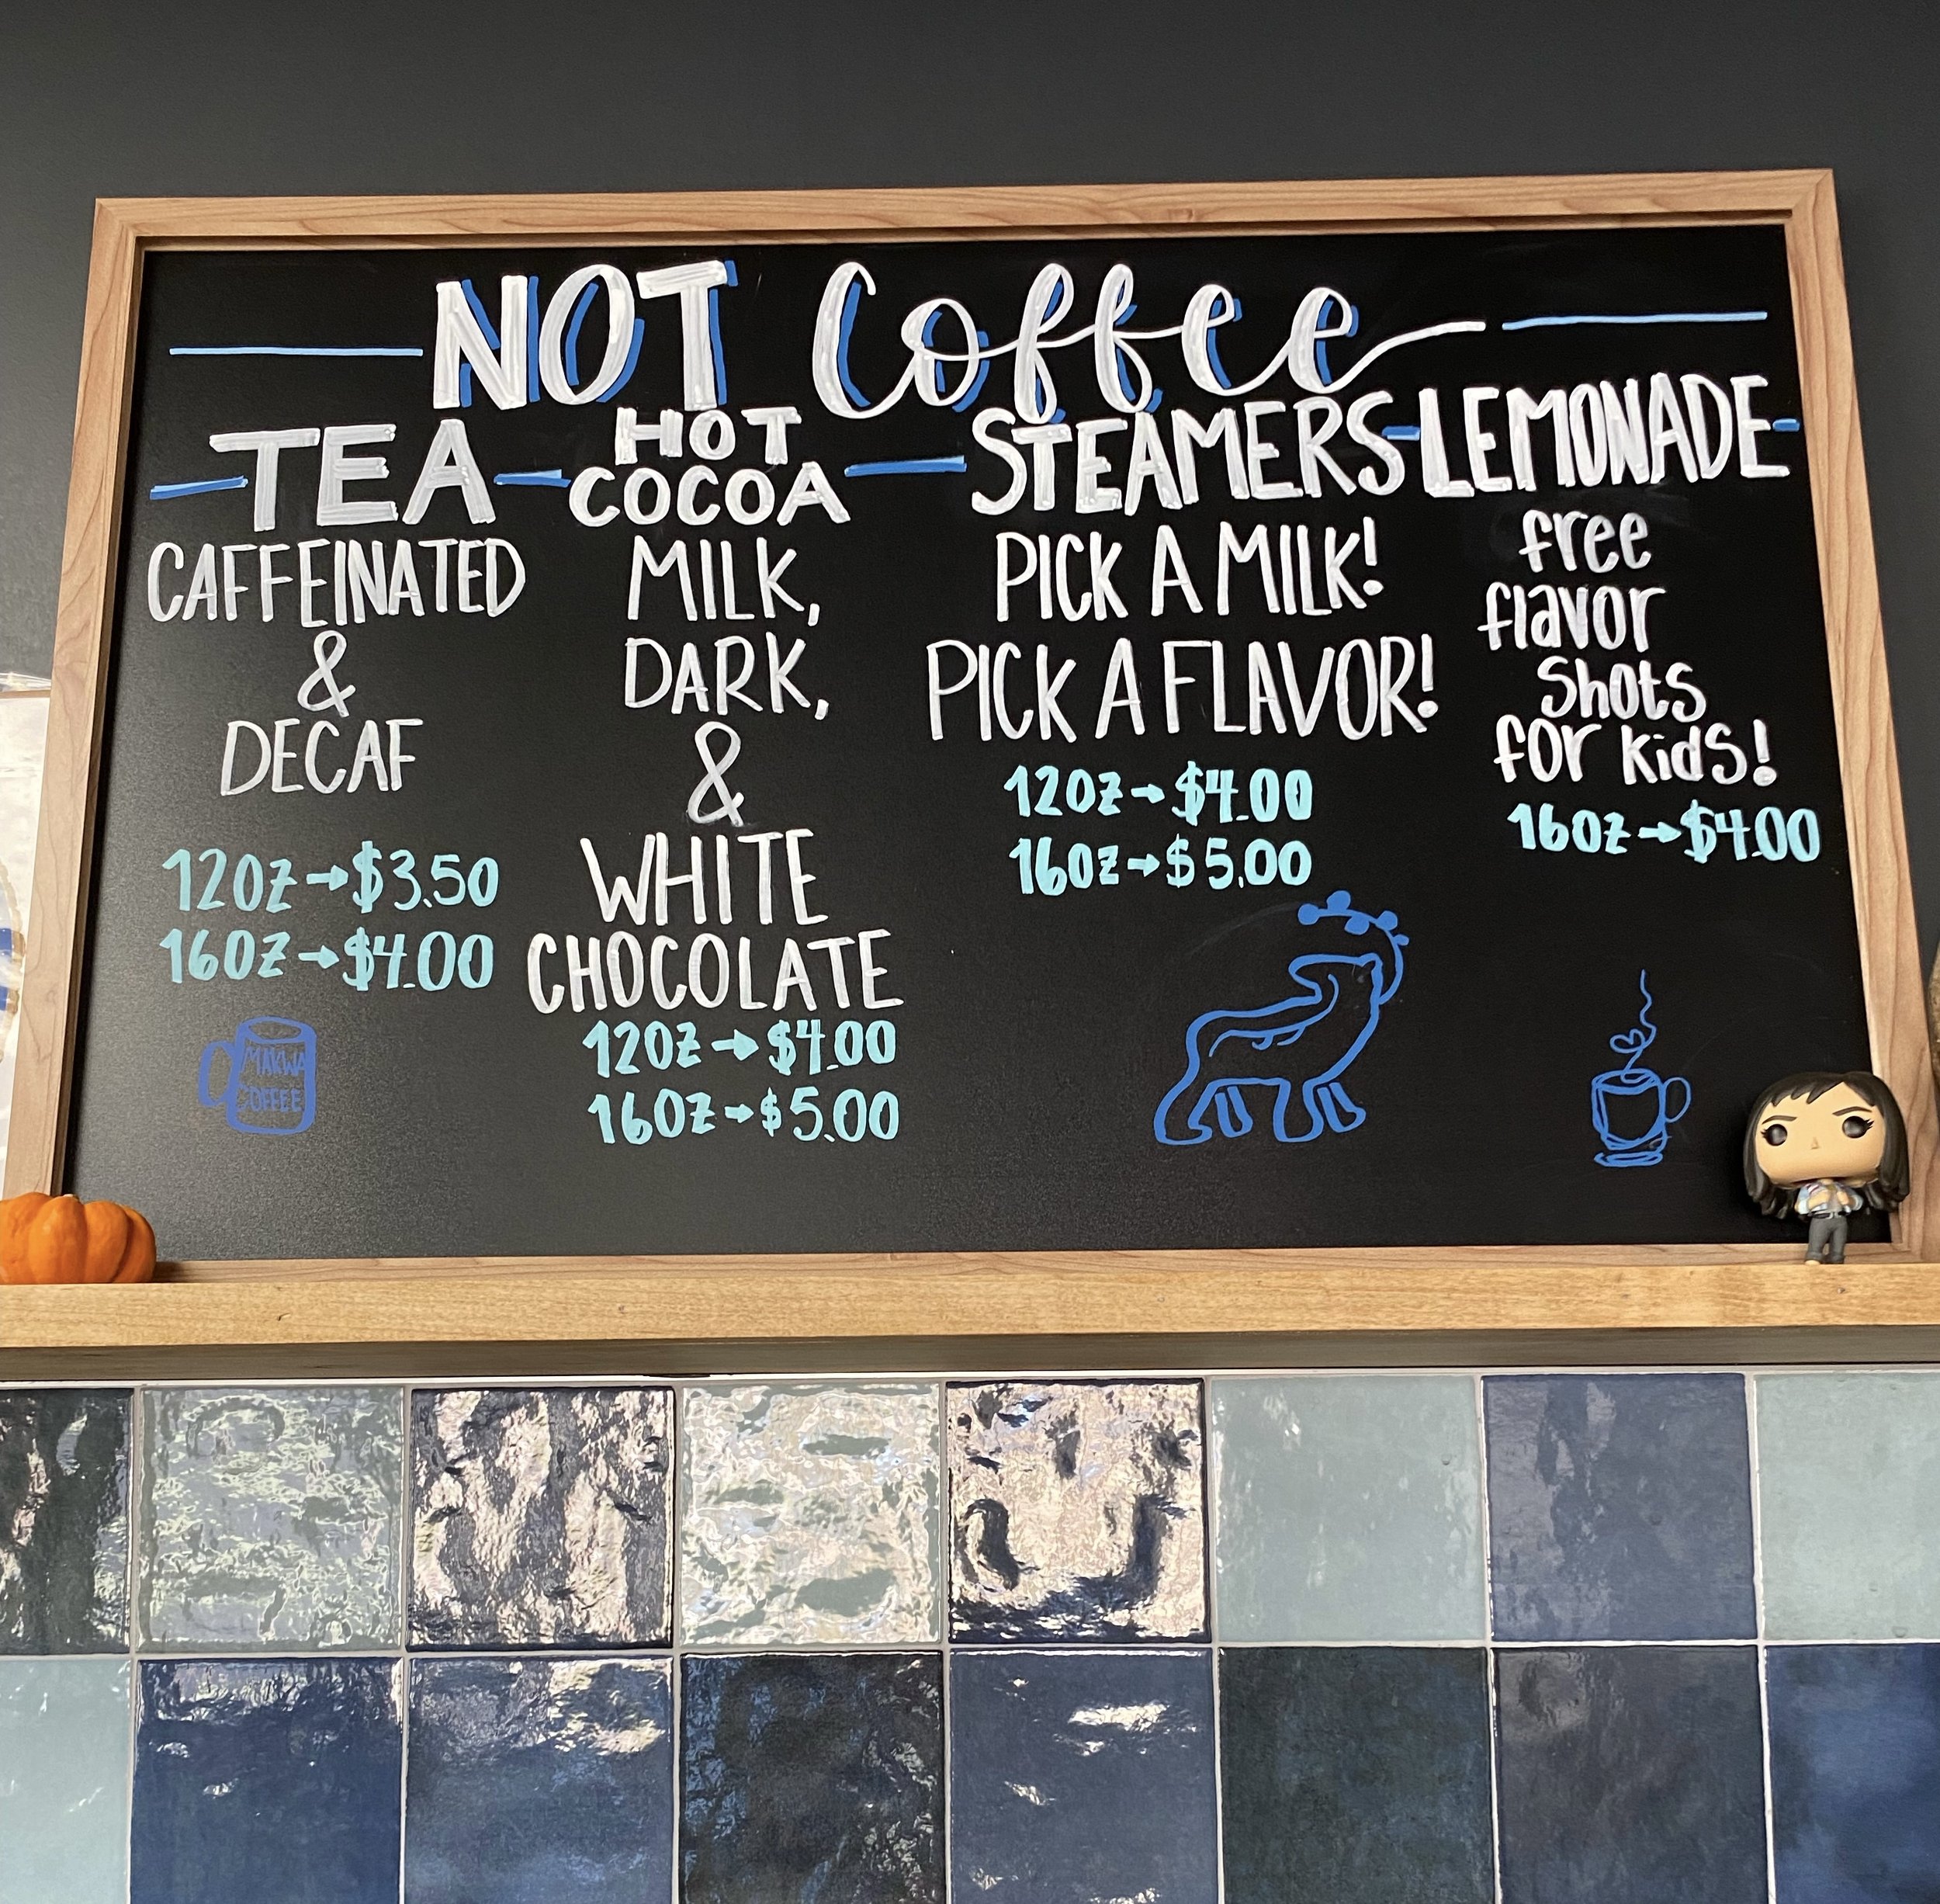 NOT Coffee
TEA
CAFFEINATED
&
DECAF
12OZ→$3.50
16OZ→$4.00
MAKWA
COFFEE
HOT
COCOA
MILK,
DARK,
&
WHITE
CHOCOLATE
12OZ→$4.00
16OZ→$5.00
STEAMERS
PICK A MILK!
PICK A FLAVOR!
12OZ→$4.00
16OZ→$5.00
LEMONADE
free
flavor
shots
for kids!
16OZ→$4.00